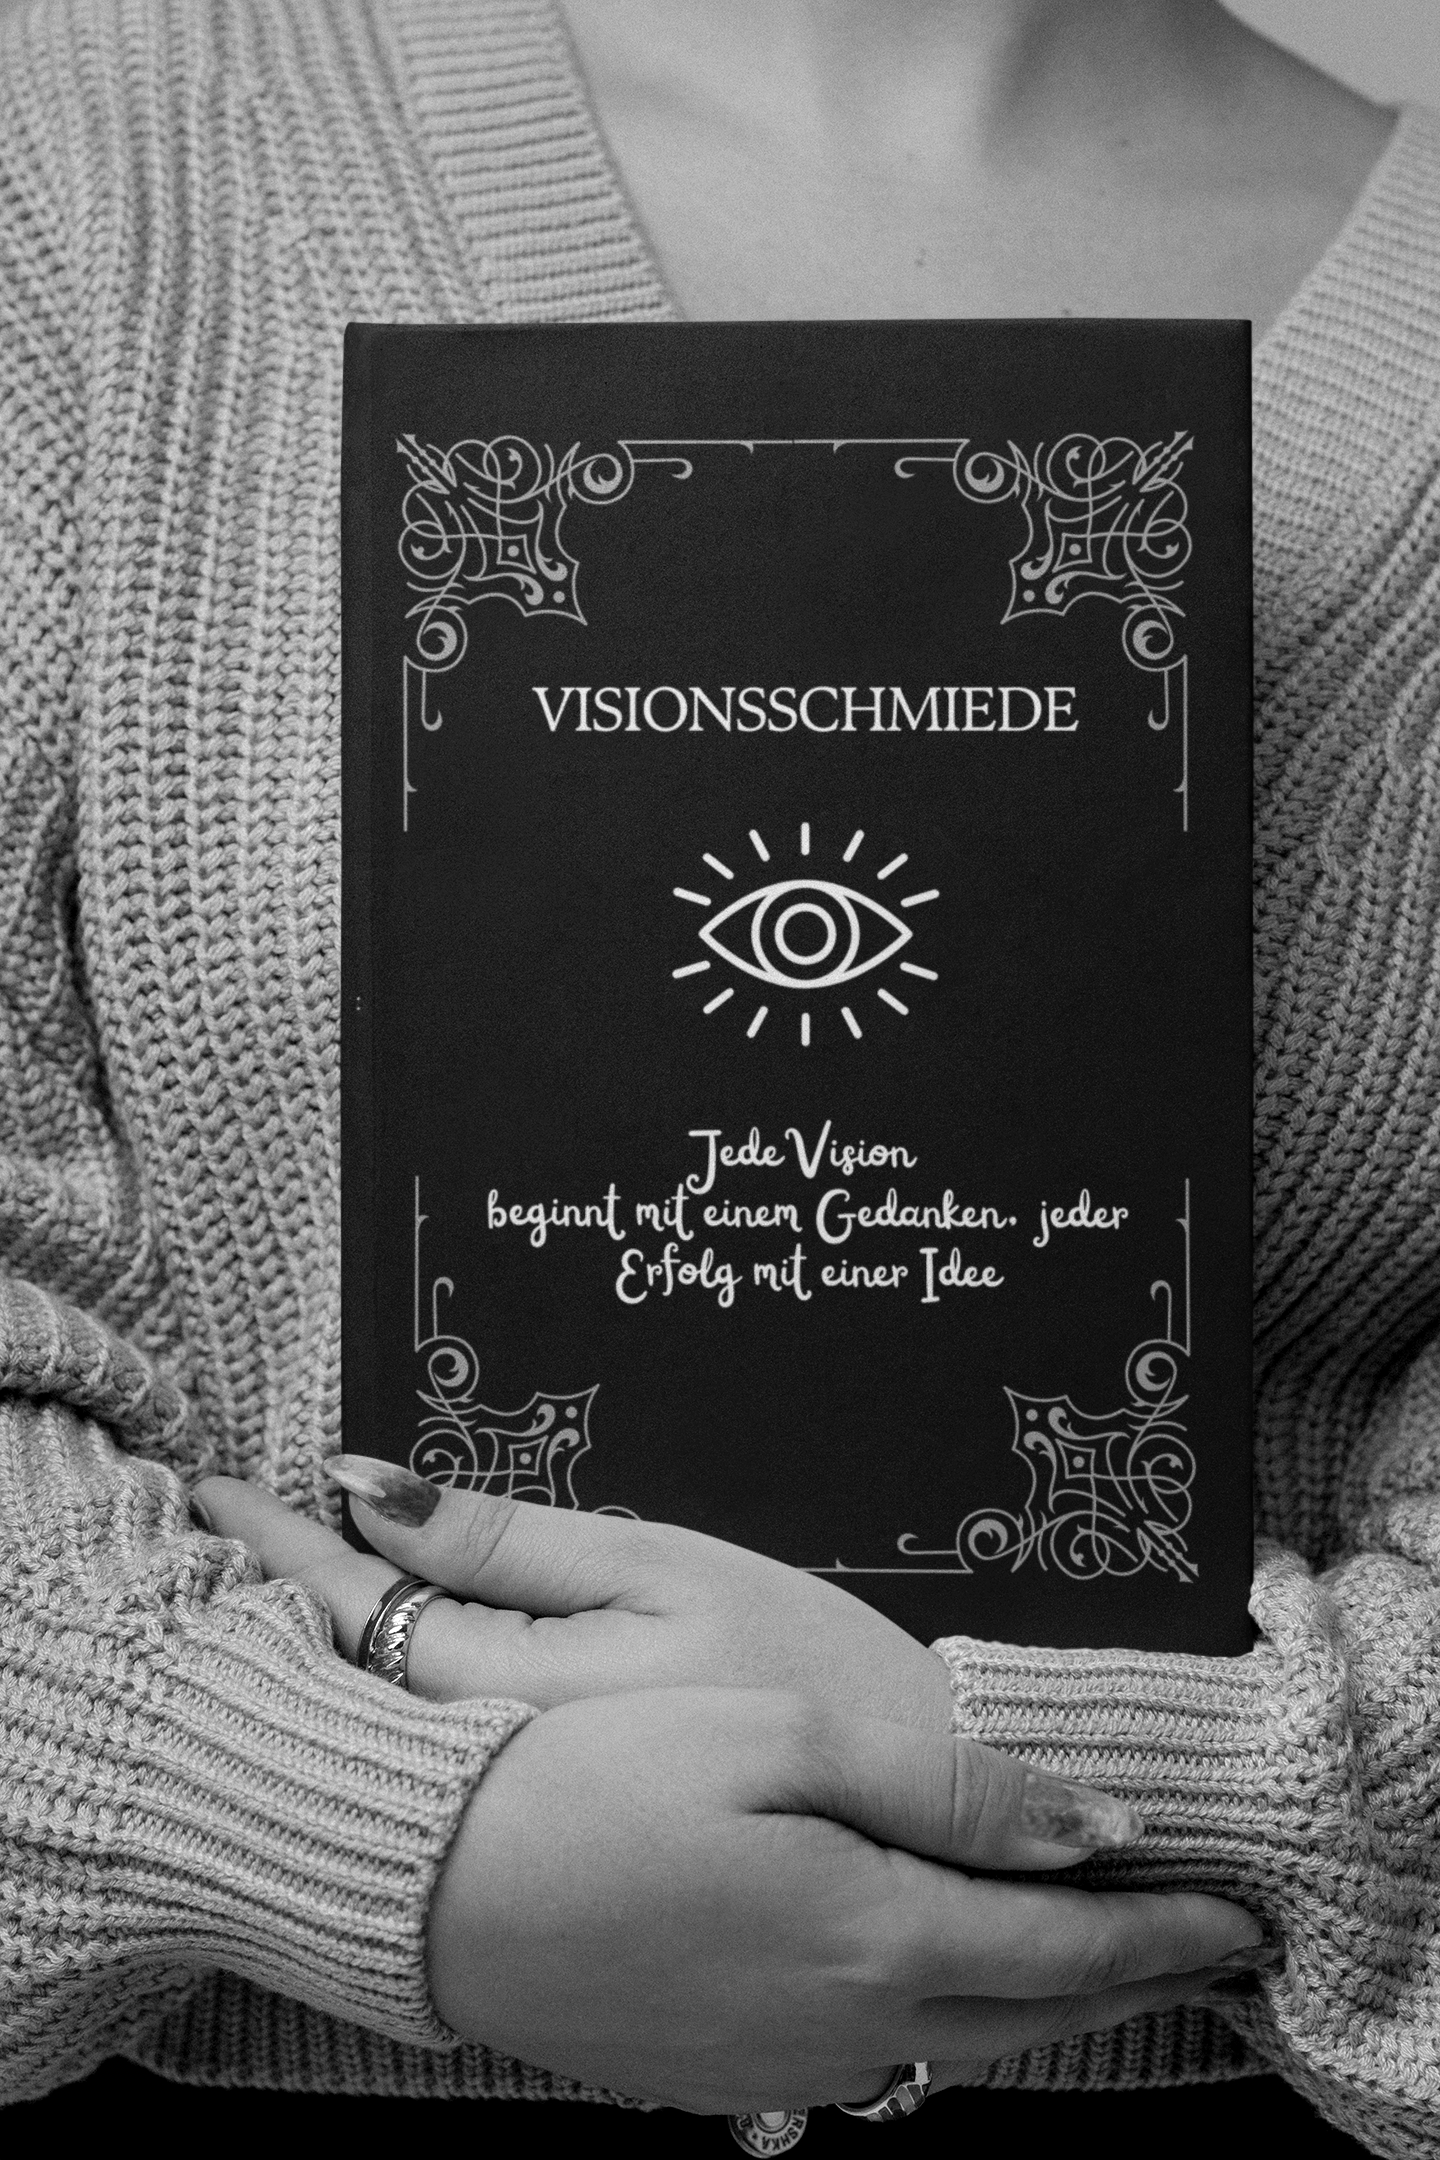 VISIONSSCHMIEDE
Jede Vision
beginnt mit einem Gedanken. jeder
Erfolg mit einer Idee